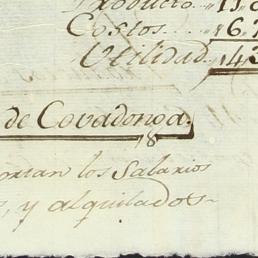 Producto.. 11,8
Costos... 6,7
Utilidad.. 4,3
de Covadonga.
18
portan los Salarios
y alquilados-